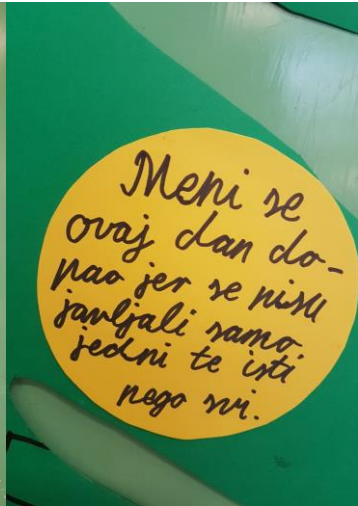 Meni se
ovaj dan do-
pao jer se nisu
javljali samo
jedni te isti
nego svi.